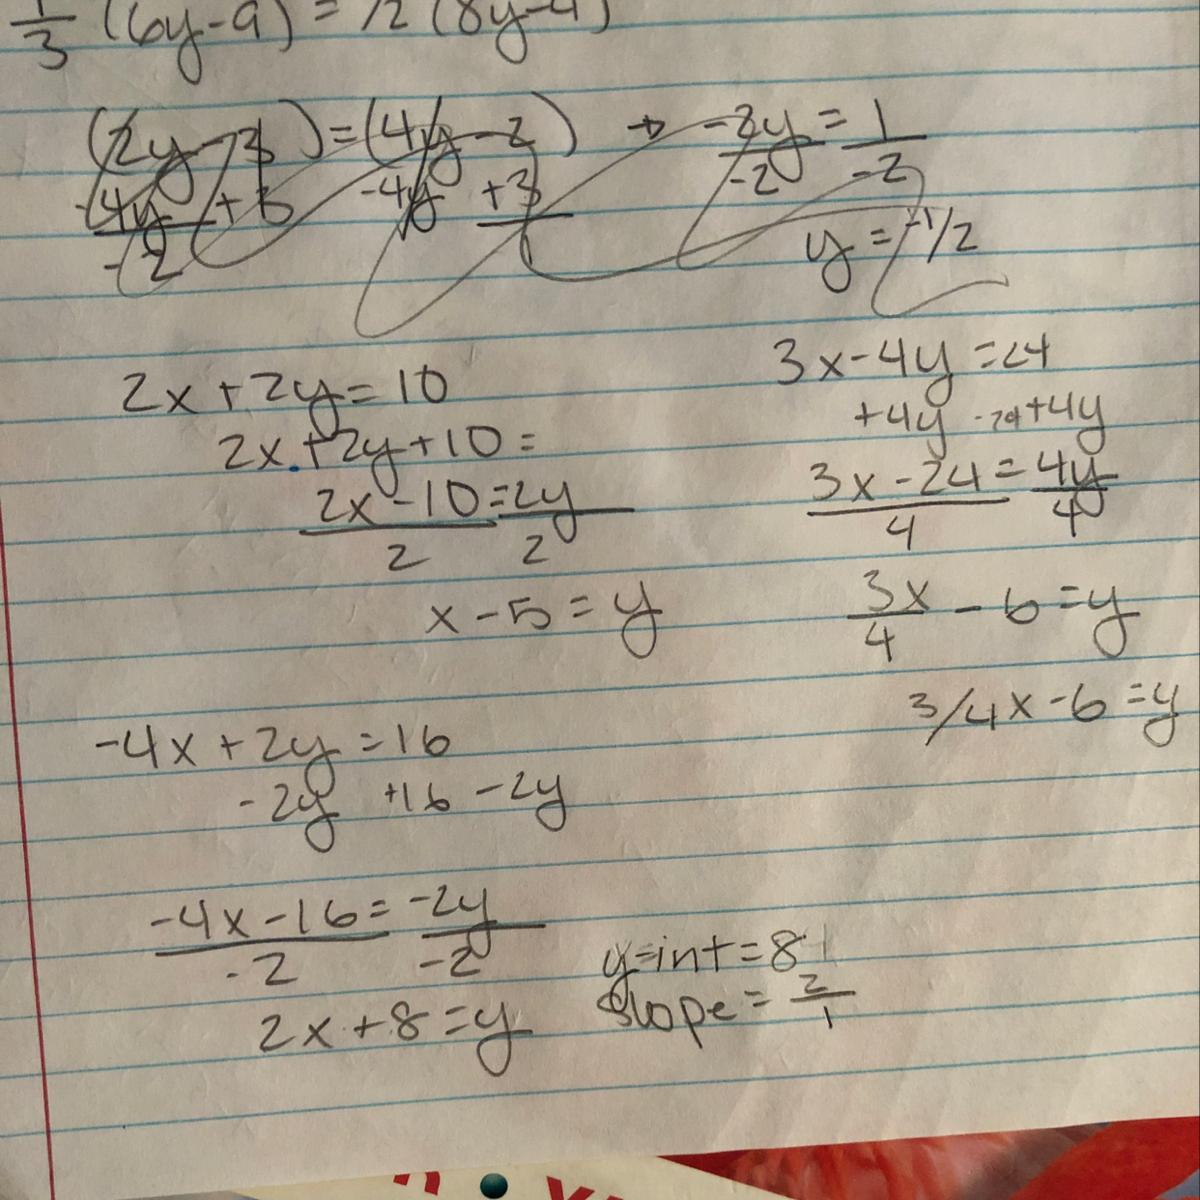 1/3 (6y-9) = 1/2 (8y-4)
(2y-3) = (4y-2) → -2y = 1
-4y +3 -4y +3 -2 -2
-2 1 y = -1/2
2x + 2y = 10
2x + 2y + 10 =
2x - 10 = 2y
2 2
x - 5 = y
3x - 4y = 24
+4y -24 +4y
3x - 24 = 4y
4 4
3x/4 - 6 = y
3/4x - 6 = y
-4x + 2y = 16
-2y +16 -2y
-4x - 16 = -2y
-2 -2
2x + 8 = y
y-int = 8
slope = 2/1